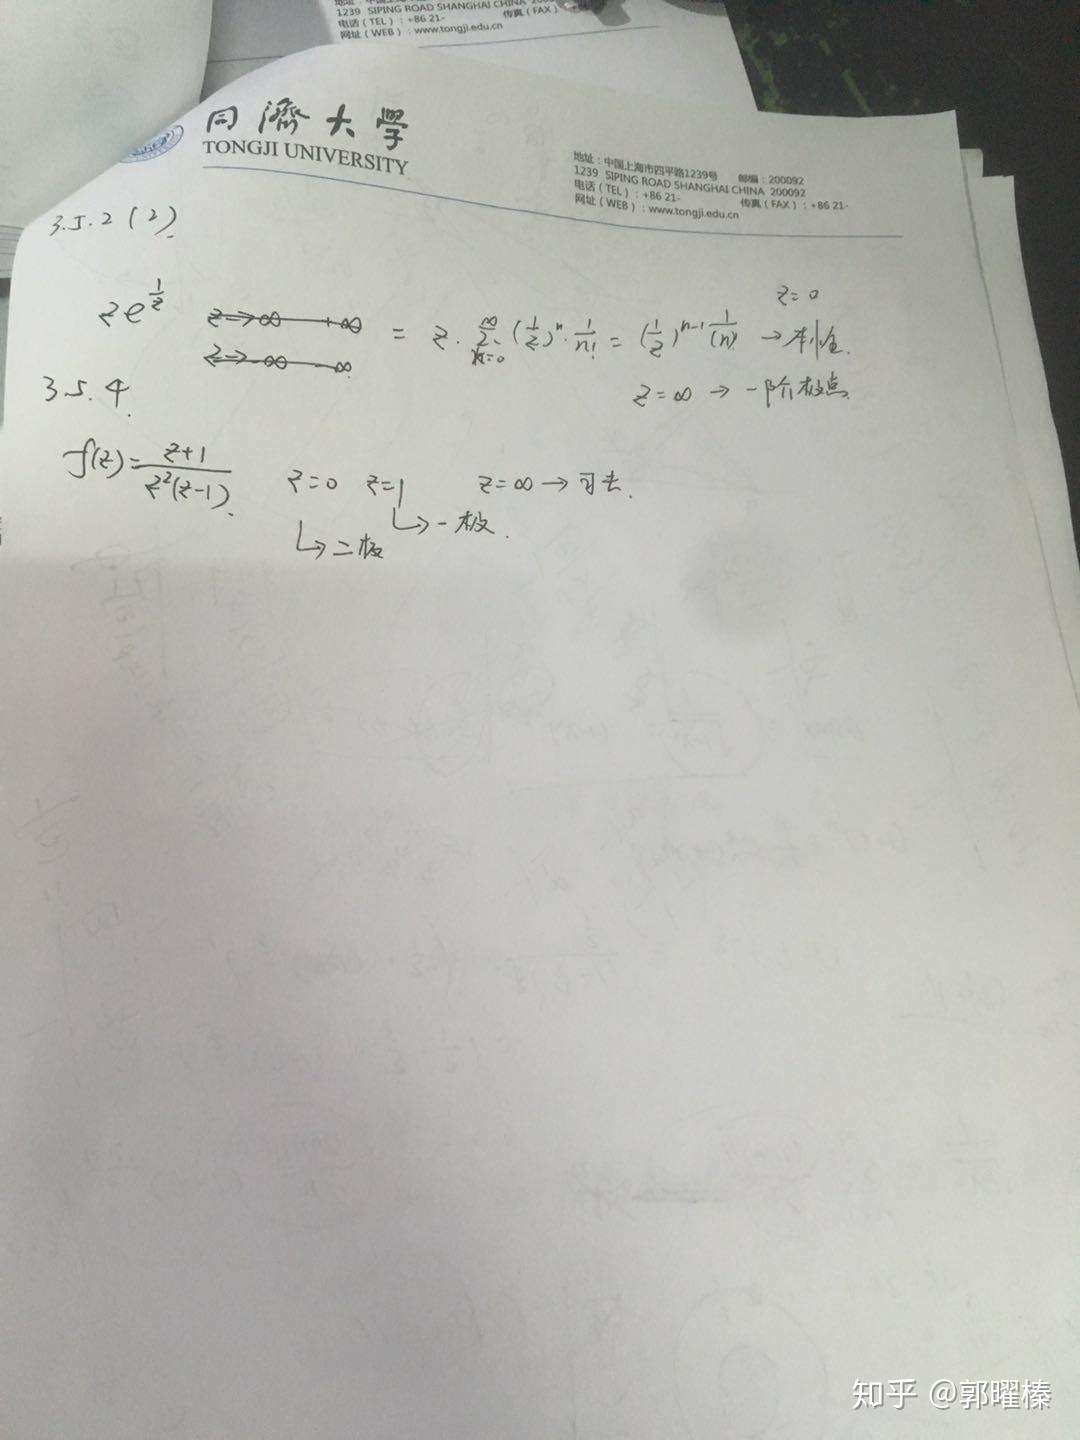 1239 SIPING ROAD SHANGHAI CHINA 200
电话（TEL）：+86 21- 传真（FAX）：
网址（WEB）：www.tongji.edu.cn
同濟大學
TONGJI UNIVERSITY
地址：中国上海市四平路1239号 邮编：200092
1239 SIPING ROAD SHANGHAI CHINA 200092
电话（TEL）：+86 21- 传真（FAX）：+86 21-
网址（WEB）：www.tongji.edu.cn
3.5.2 (2).
z=0
ze^{1/z} z→∞ +∞ = z·∑_{n=0}^{∞} (1/z)^n · 1/n! = (1/z)^{n-1} 1/(n)! → 本性.
z→-∞ -∞
z=∞ → 一阶极点.
3.5.4.
f(z)= (z+1)/(z²(z-1)). z=0 z=1 z=∞ → 可去.
↳ 一极.
↳ 二极
知乎 @郭曜榛